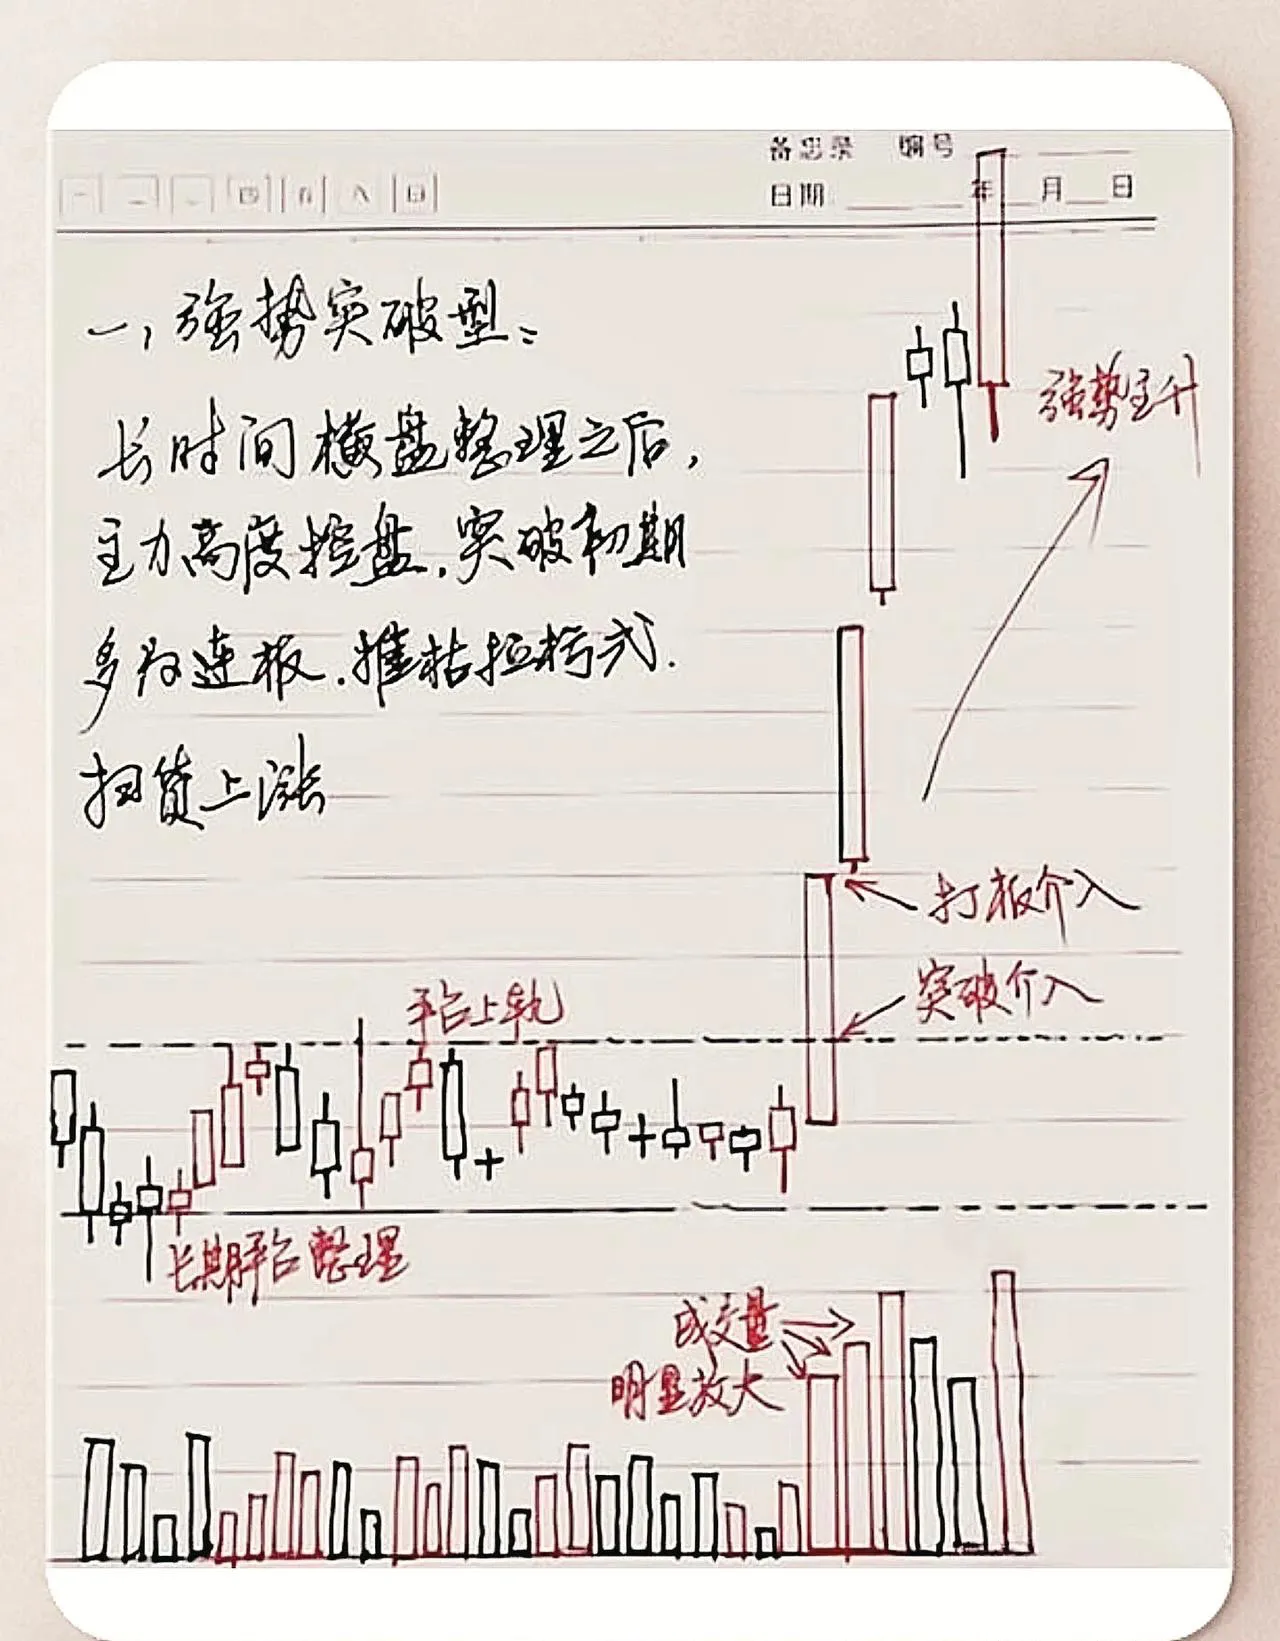 备忘录 编号
日期 年 月 日
一 二 三 四 五 六 日
一，强势突破型：
长时间横盘整理之后，
主力高度控盘，突破初期
多为连板．摧枯拉朽式．
扫货上涨
强势主升
打板介入
突破介入
平台上轨
长期平台整理
成交量
明显放大